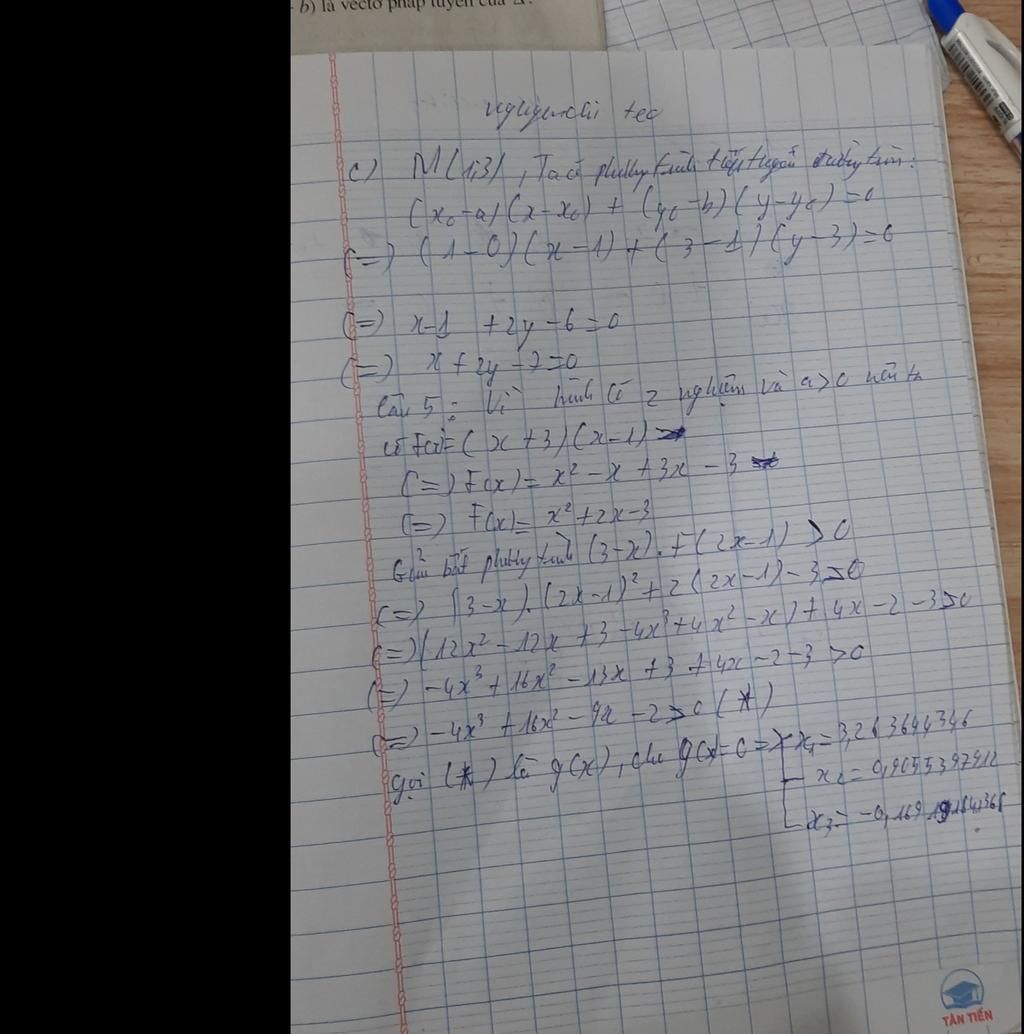 b) là vectơ pháp tuyến của Δ.
c) M(1;3), Ta có phương trình tiếp tuyến đường tròn:
(x₀-a)(x-x₀) + (y₀-b)(y-y₀)=0
(=) (1-0)(x-1)+(3-1)(y-3)=0
(=) x-1 +2y-6=0
(=) x+2y-7=0
Câu 5: Vì hình có 2 nghiệm và a>0 nên ta
có F(x)=(x+3)(x-1)
(=) F(x)= x²-x+3x-3
(=) F(x)= x²+2x-3
Giải bất phương trình (3-x).F(2x-1)>0
(=) (3-x).(2x-1)²+2(2x-1)-3>0
(=)(12x²-12x+3-4x³+4x²-x)+4x-2-3>0
(=) -4x³+16x²-13x+3+4x-2-3>0
(=) -4x³+16x²-9x-2>0 (*)
gọi (*) là g(x), cho g(x)=0=> x₁=3,263644346
x₂=0,9055397912
x₃=
TÂN TIẾN